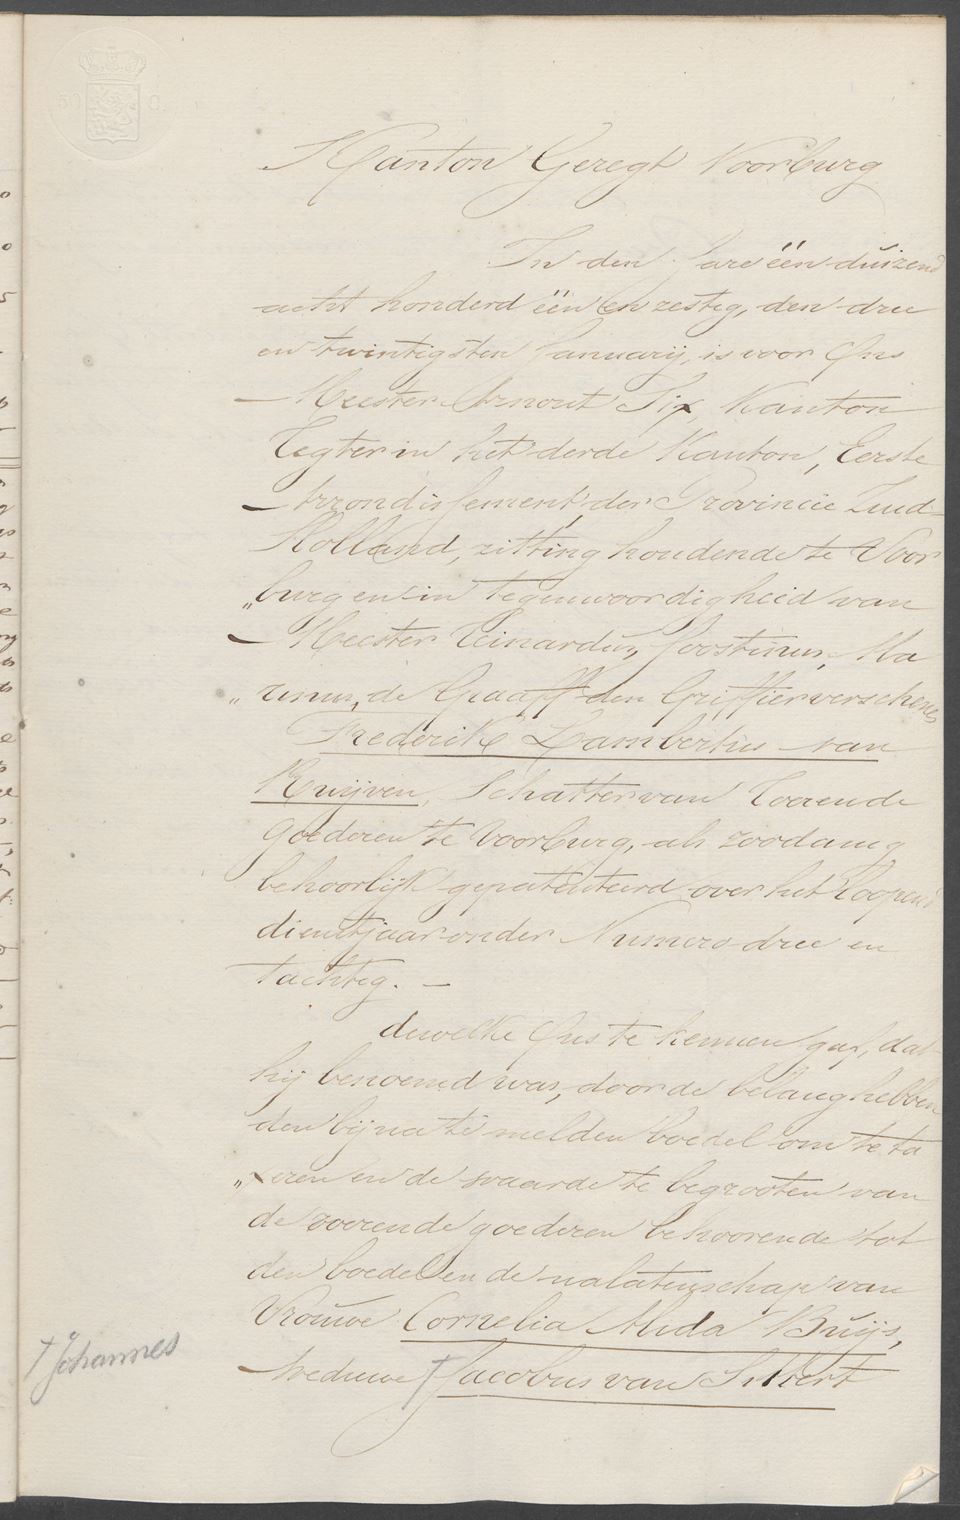 50 C.
Kanton Geregt Voorburg
In den Jare één duizend
acht honderd één en zestig, den drie
en twintigsten January, is voor Ons
Meester Arnout Six, Kanton
Regter in het derde Kanton, Eerste
Arrondissement der Provincie Zuid-
Holland, zitting houdende te Voor
„burg en in tegenwoordigheid van
Meester Reinardus Joostinus, Ma
„rinus, de Graaff den Griffier verschenen
Frederik Lambertus van
Kuijven, Schatter van Roerende
Goederen te Voorburg, als zoodanig
behoorlijk gepatenteerd over het loopend
dienstjaar onder Numero drie en
tachtig. —
dewelke Ons te kennen gaf, dat
hij benoemd was, door de belanghebben
den bij na te melden boedel om te ta
„xeren en de waarde te begrooten van
de roerende goederen behoorende tot
den boedel en de nalatenschap van
Vrouwe Cornelia Alida Buijs,
Weduwe † Jacobus van Sikkert
† Johannes